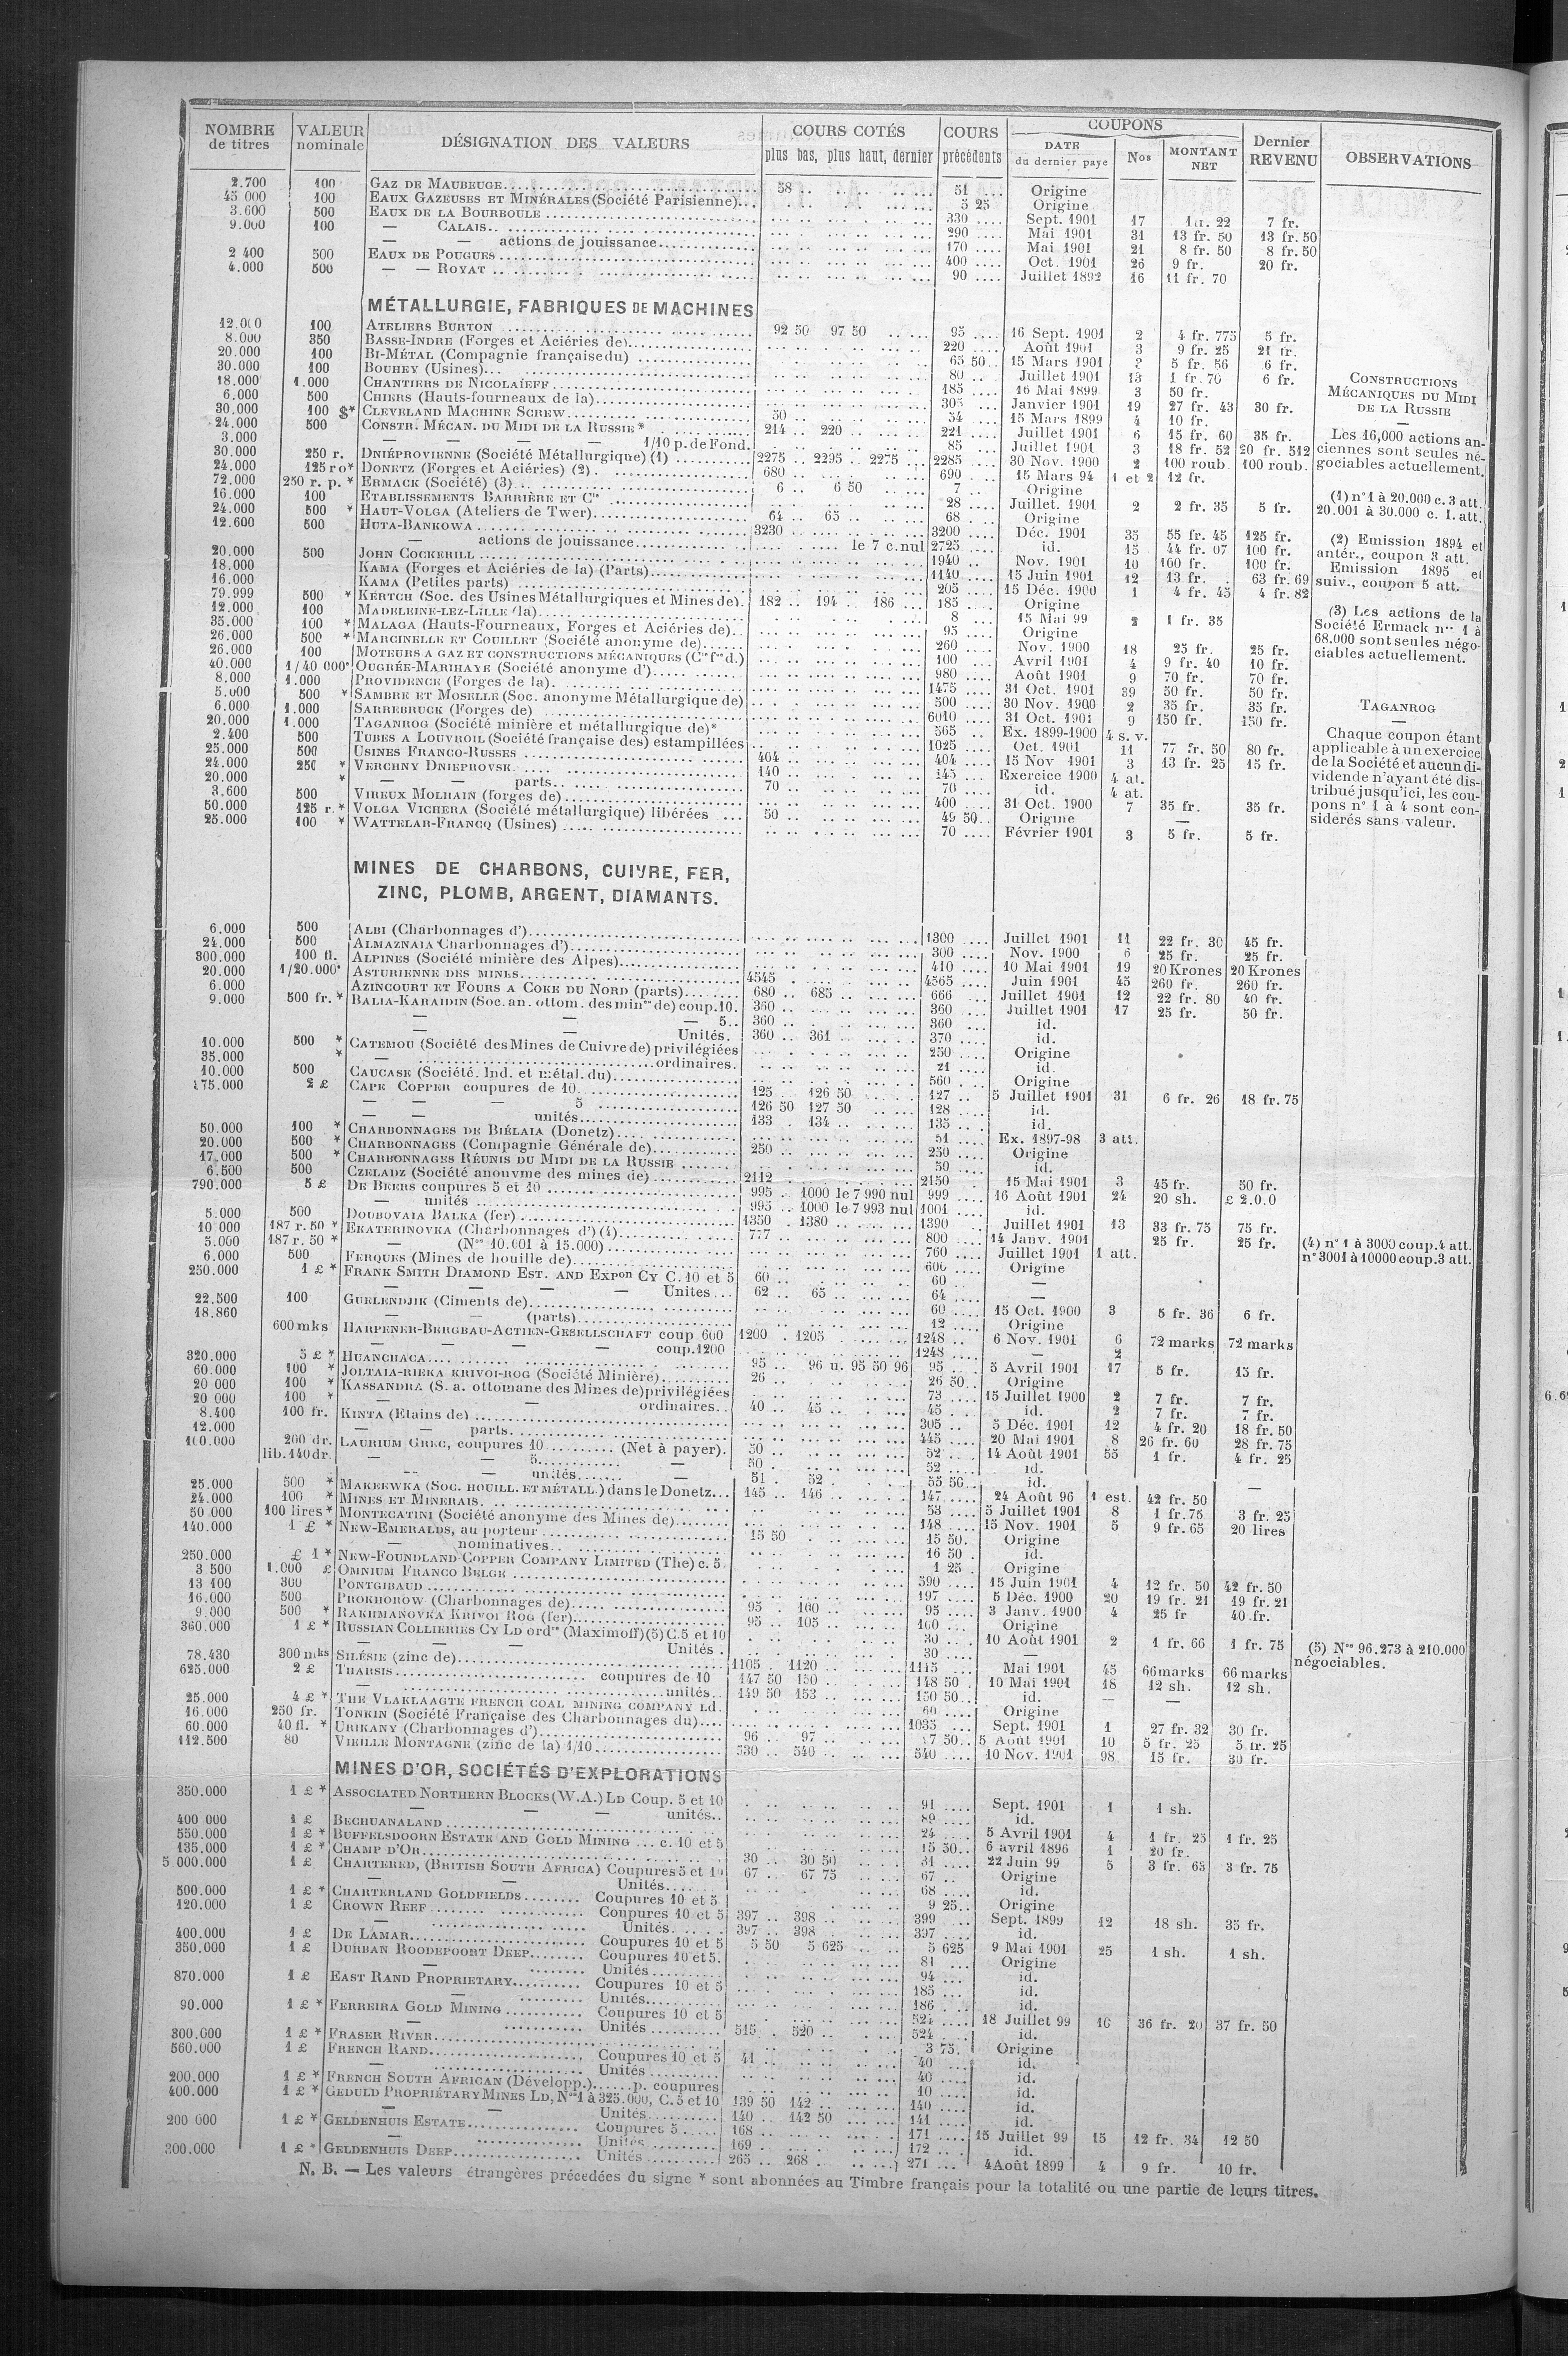 NOMBRE de titres | VALEUR nominale | DÉSIGNATION DES VALEURS | COURS COTÉS plus bas, plus haut, dernier | COURS précédents | COUPONS DATE du dernier payé | Nos | MONTANT NET | Dernier REVENU | OBSERVATIONS
2.700 100 GAZ DE MAUBEUGE 58 51 Origine
45 000 100 EAUX GAZEUSES ET MINÉRALES (Société Parisienne) 5 25 Origine
3.600 500 EAUX DE LA BOURBOULE 330 Sept. 1901 17 22 7 fr.
9.000 100 — CALAIS 290 Mai 1901 31 13 fr. 50 13 fr. 50
— — actions de jouissance 170 Mai 1901 21 8 fr. 50 8 fr. 50
2 400 500 EAUX DE POUGUES 400 Oct. 1901 26 9 fr. 20 fr.
4.000 500 — — ROYAT 90 Juillet 1892 16 11 fr. 70
MÉTALLURGIE, FABRIQUES DE MACHINES
12.000 100 ATELIERS BURTON 92 50 97 50 95 16 Sept. 1901 2 4 fr. 775 5 fr.
8.000 350 BASSE-INDRE (Forges et Aciéries de) 220 Août 1901 3 9 fr. 25 21 fr.
20.000 100 BI-MÉTAL (Compagnie française du) 65 50 15 Mars 1901 5 fr. 56 6 fr.
30.000 100 BOUHEY (Usines) 80 Juillet 1901 13 1 fr. 70 6 fr.
18.000 1.000 CHANTIERS DE NICOLAÏEFF 185 16 Mai 1899 3 50 fr.
6.000 500 CHIERS (Hauts-fourneaux de la) 305 Janvier 1901 19 27 fr. 43 30 fr.
30.000 100 $* CLEVELAND MACHINE SCREW 50 54 15 Mars 1899 4 10 fr.
24.000 500 CONSTR. MÉCAN. DU MIDI DE LA RUSSIE* 214 220 221 Juillet 1901 6 15 fr. 60 35 fr.
3.000 — — — — 1/10 p. de Fond. 85 Juillet 1901 3 18 fr. 52 20 fr. 512
30.000 250 r. DNIÉPROVIENNE (Société Métallurgique) (1) 2275 2295 2275 2285 30 Nov. 1900 2 100 roub. 100 roub.
24.000 125 ro* DONETZ (Forges et Aciéries) (2) 680 690 15 Mars 94 1 et 2 12 fr.
72.000 250 r. p. * ERMACK (Société) (3) 6 6 50 7 Origine
16.000 100 ETABLISSEMENTS BARRIÈRE ET Cie 28 Juillet. 1901 2 2 fr. 35 5 fr.
24.000 500 * HAUT-VOLGA (Ateliers de Twer) 64 65 68 Origine
12.600 500 HUTA-BANKOWA 3230 3200 Déc. 1901 35 55 fr. 45 125 fr.
— actions de jouissance le 7 c. nul 2725 id. 15 44 fr. 07 100 fr.
20.000 500 JOHN COCKERILL 1940 Nov. 1901 10 100 fr. 100 fr.
18.000 KAMA (Forges et Aciéries de la) (Parts) 1140 15 Juin 1901 12 13 fr. 63 fr. 69
16.000 KAMA (Petites parts) 205 15 Déc. 1900 1 4 fr. 45 4 fr. 82
79.999 500 * KERTCH (Soc. des Usines Métallurgiques et Mines de) 182 194 186 185 Origine
12.000 100 MADELEINE-LEZ-LILLE (la) 8 15 Mai 99 2 1 fr. 35
35.000 100 * MALAGA (Hauts-Fourneaux, Forges et Aciéries de) 95 Origine
26.000 500 * MARCINELLE ET COUILLET (Société anonyme de) 260 Nov. 1900 18 25 fr. 25 fr.
26.000 100 MOTEURS A GAZ ET CONSTRUCTIONS MÉCANIQUES (Cie fse d.) 100 Avril 1901 4 9 fr. 40 10 fr.
40.000 1/40 000e OUGRÉE-MARIHAYE (Société anonyme d') 980 Août 1901 9 70 fr. 70 fr.
8.000 1.000 PROVIDENCE (Forges de la) 1475 31 Oct. 1901 39 50 fr. 50 fr.
5.000 500 * SAMBRE ET MOSELLE (Soc. anonyme Métallurgique de) 500 30 Nov. 1900 2 35 fr. 35 fr.
6.000 1.000 SARREBRUCK (Forges de) 6010 31 Oct. 1901 9 150 fr. 150 fr.
20.000 1.000 TAGANROG (Société minière et métallurgique de)* 565 Ex. 1899-1900 4 s. v.
2.400 500 TUBES A LOUVROIL (Société française des) estampillées 1025 Oct. 1901 11 77 fr. 50 80 fr.
25.000 500 USINES FRANCO-RUSSES 404 404 15 Nov 1901 3 13 fr. 25 15 fr.
24.000 250 * VERCHNY DNIEPROVSK 140 145 Exercice 1900 4 at.
20.000 * — — parts 70 70 id. 4 at.
3.600 500 VIREUX MOLHAIN (forges de) 400 31 Oct. 1900 7 35 fr. 35 fr.
50.000 125 r. * VOLGA VICHERA (Société métallurgique) libérées 50 49 50 Origine —
25.000 100 * WATTELAR-FRANCQ (Usines) 70 Février 1901 3 5 fr. 5 fr.
CONSTRUCTIONS
MÉCANIQUES DU MIDI
DE LA RUSSIE
—
Les 16,000 actions an-
ciennes sont seules né-
gociables actuellement.
(1) n° 1 à 20.000 c. 3 att.
20.001 à 30.000 c. 1. att.
(2) Emission 1894 et
antér., coupon 3 att.
Emission 1895 et
suiv., coupon 5 att.
(3) Les actions de la
Société Ermack nos 1 à
68.000 sont seules négo-
ciables actuellement.
TAGANROG
—
Chaque coupon étant
applicable à un exercice
de la Société et aucun di-
vidende n'ayant été dis-
tribué jusqu'ici, les cou-
pons n° 1 à 4 sont con-
siderés sans valeur.
MINES DE CHARBONS, CUIVRE, FER,
ZINC, PLOMB, ARGENT, DIAMANTS.
6.000 500 ALBI (Charbonnages d') 1300 Juillet 1901 11 22 fr. 30 45 fr.
24.000 500 ALMAZNAIA (Charbonnages d') 300 Nov. 1900 6 25 fr. 25 fr.
300.000 100 fl. ALPINES (Société minière des Alpes) 410 10 Mai 1901 19 20 Krones 20 Krones
20.000 1/20.000e ASTURIENNE DES MINES 4545 4565 Juin 1901 45 260 fr. 260 fr.
6.000 AZINCOURT ET FOURS A COKE DU NORD (parts) 680 685 666 Juillet 1901 12 22 fr. 80 40 fr.
9.000 500 fr. * BALIA-KARAIDIN (Soc. an. ottom. des mines de) coup. 10. 360 360 Juillet 1901 17 25 fr. 50 fr.
— — — 5 360 360 id.
— — Unités. 360 361 370 id.
10.000 500 * CATEMOU (Société des Mines de Cuivre de) privilégiées 250 Origine
35.000 * — ordinaires. 21 id.
10.000 500 CAUCASE (Société. Ind. et métal. du) 560 Origine
175.000 2 £ CAPE COPPER coupures de 10 125 126 50 127 5 Juillet 1901 31 6 fr. 26 18 fr. 75
— — 5 126 50 127 50 128 id.
— — unités 133 134 135 id.
50.000 100 * CHARBONNAGES DE BIÉLAIA (Donetz) 51 Ex. 1897-98 3 att.
20.000 500 * CHARBONNAGES (Compagnie Générale de) 250 250 Origine
17.000 500 * CHARBONNAGES RÉUNIS DU MIDI DE LA RUSSIE 50 id.
6.500 500 CZELADZ (Société anonyme des mines de) 2112 2150 15 Mai 1901 3 45 fr. 50 fr.
790.000 5 £ DE BEERS coupures 5 et 10 995 1000 le 7 990 nul 999 16 Août 1901 24 20 sh. £ 2.0.0
— unités 995 1000 le 7 993 nul 1001 id.
5.000 500 DOUBOVAIA BALKA (fer) 1350 1380 1390 Juillet 1901 13 33 fr. 75 75 fr.
10 000 187 r. 50 * EKATERINOVKA (Charbonnages d') (4) 777 800 14 Janv. 1901 25 fr. 25 fr.
5.000 187 r. 50 * — (Nos 10.001 à 15.000) 760 Juillet 1901 1 att.
6.000 500 FERQUES (Mines de houille de) 600 Origine
250.000 1 £ * FRANK SMITH DIAMOND EST. AND EXPon CY C. 10 et 5 60 60 —
— — — Unites 62 65 64 —
22.500 100 GUELENDJIK (Ciments de) 60 15 Oct. 1900 3 5 fr. 36 6 fr.
18.860 — — (parts) 12 Origine
600 mks HARPENER-BERGBAU-ACTIEN-GESELLSCHAFT coup 600 1200 1205 1248 6 Nov. 1901 6 72 marks 72 marks
— — — — coup. 1200 1248 — 2
320.000 5 £ * HUANCHACA 95 96 u. 95 50 96 95 5 Avril 1901 17 5 fr. 15 fr.
60.000 100 * JOLTAIA-RIEKA KRIVOI-ROG (Société Minière) 26 26 50 Origine
20 000 100 * KASSANDRA (S. a. ottomane des Mines de) privilégiées 73 15 Juillet 1900 2 7 fr. 7 fr.
20 000 100 * — — ordinaires. 40 45 45 id. 2 7 fr. 7 fr.
8.400 100 fr. KINTA (Etains de) 305 5 Déc. 1901 12 4 fr. 20 18 fr. 50
12.000 — — parts 445 20 Mai 1901 8 26 fr. 60 28 fr. 75
100.000 200 dr. LAURIUM GREC, coupures 10 (Net à payer). 50 52 14 Août 1901 55 1 fr. 4 fr. 25
lib. 140 dr. — — 5 — 50 52 id.
— — unités — 51 52 55 50 id.
25.000 500 * MAKEEWKA (SOC. HOUILL. ET MÉTALL.) dans le Donetz 145 146 147 24 Août 96 1 est. 42 fr. 50 —
24.000 100 * MINES ET MINERAIS 53 5 Juillet 1901 8 1 fr. 75 3 fr. 25
50 000 100 lires * MONTECATINI (Société anonyme des Mines de) 148 15 Nov. 1901 5 9 fr. 65 20 lires
140.000 1 £ * NEW-EMERALDS, au porteur 15 50 15 50 Origine
— nominatives 16 50 id.
250.000 £ 1 * NEW-FOUNDLAND COPPER COMPANY LIMITED (The) c. 5. 1 25 Origine
3 500 1.000 £ OMNIUM FRANCO BELGE 590 15 Juin 1901 4 12 fr. 50 42 fr. 50
13 100 300 PONTGIBAUD 197 5 Déc. 1900 20 19 fr. 21 19 fr. 21
16.000 500 PROKHOROW (Charbonnages de) 95 100 95 3 Janv. 1900 4 25 fr 40 fr.
9.000 500 * RAKHMANOVKA KRIVOI ROG (fer) 95 105 100 Origine
360.000 1 £ * RUSSIAN COLLIERIES CY LD ordres (Maximoff) (5) C. 5 et 10 30 10 Août 1901 2 1 fr. 66 1 fr. 75
— — — Unités 30 —
78.430 300 mks SILÉSIE (zinc de) 1105 1120 1115 Mai 1901 45 66 marks 66 marks
625.000 2 £ THARSIS coupures de 10 147 50 150 148 50 10 Mai 1901 18 12 sh. 12 sh.
— unités 149 50 153 150 50 id. — —
25.000 4 £ * THE VLAKLAAGTE FRENCH COAL MINING COMPANY Ld. 60 Origine
16.000 250 fr. TONKIN (Société Française des Charbonnages du) 1035 Sept. 1901 1 27 fr. 32 30 fr.
60.000 40 fl. * URIKANY (Charbonnages d') 96 97 7 50 5 Août 1901 10 5 fr. 25 5 fr. 25
112.500 80 VIEILLE MONTAGNE (zinc de la) 1/10 530 540 540 10 Nov. 1901 98 15 fr. 30 fr.
(4) n° 1 à 3000 coup. 4 att.
n° 3001 à 10000 coup. 3 att.
(5) Nos 96.273 à 210.000
négociables.
MINES D'OR, SOCIÉTÉS D'EXPLORATIONS
350.000 1 £ * ASSOCIATED NORTHERN BLOCKS (W. A.) LD Coup. 5 et 10 91 Sept. 1901 1 1 sh.
— — — unités 89 id.
400 000 1 £ BECHUANALAND 24 5 Avril 1901 4 1 fr. 25 1 fr. 25
550.000 1 £ * BUFFELSDOORN ESTATE AND GOLD MINING c. 10 et 5 15 50 6 avril 1896 1 20 fr.
135.000 1 £ * CHAMP D'OR 30 30 50 31 22 Juin 99 5 3 fr. 65 3 fr. 75
5 000.000 1 £ CHARTERED, (BRITISH SOUTH AFRICA) Coupures 5 et 10 67 67 75 67 Origine
— — Unités 68 id.
500.000 1 £ * CHARTERLAND GOLDFIELDS Coupures 10 et 5 9 25 Origine
120.000 1 £ CROWN REEF Coupures 10 et 5 397 398 399 Sept. 1899 12 18 sh. 35 fr.
— Unités 397 398 397 id.
400.000 1 £ DE LAMAR Coupures 10 et 5 5 50 5 625 5 625 9 Mai 1901 25 1 sh. 1 sh.
350.000 1 £ DURBAN ROODEPOORT DEEP Coupures 10 et 5. 81 Origine
— Unités 94 id.
870.000 1 £ EAST RAND PROPRIETARY Coupures 10 et 5 185 id.
— Unités 186 id.
90.000 1 £ * FERREIRA GOLD MINING Coupures 10 et 5 524 18 Juillet 99 16 36 fr. 20 37 fr. 50
— Unités 515 520 524 id.
300.000 1 £ * FRASER RIVER 3 75 Origine
560.000 1 £ FRENCH RAND Coupures 10 et 5 41 40 id.
— Unités 40 id.
200.000 1 £ * FRENCH SOUTH AFRICAN (Développ.) p. coupures 10 id.
400.000 1 £ * GEDULD PROPRIÉTARY MINES LD, Nos 1 à 325.000, C. 5 et 10 139 50 142 140 id.
— — Unités 140 142 50 141 id.
200 000 1 £ * GELDENHUIS ESTATE Coupures 5 168 171 15 Juillet 99 15 12 fr. 34 12 50
— Unités 169 172 id.
300.000 1 £ * GELDENHUIS DEEP Unités 265 268 271 4 Août 1899 4 9 fr. 10 fr.
N. B. — Les valeurs étrangères précedées du signe * sont abonnées au Timbre français pour la totalité ou une partie de leurs titres.